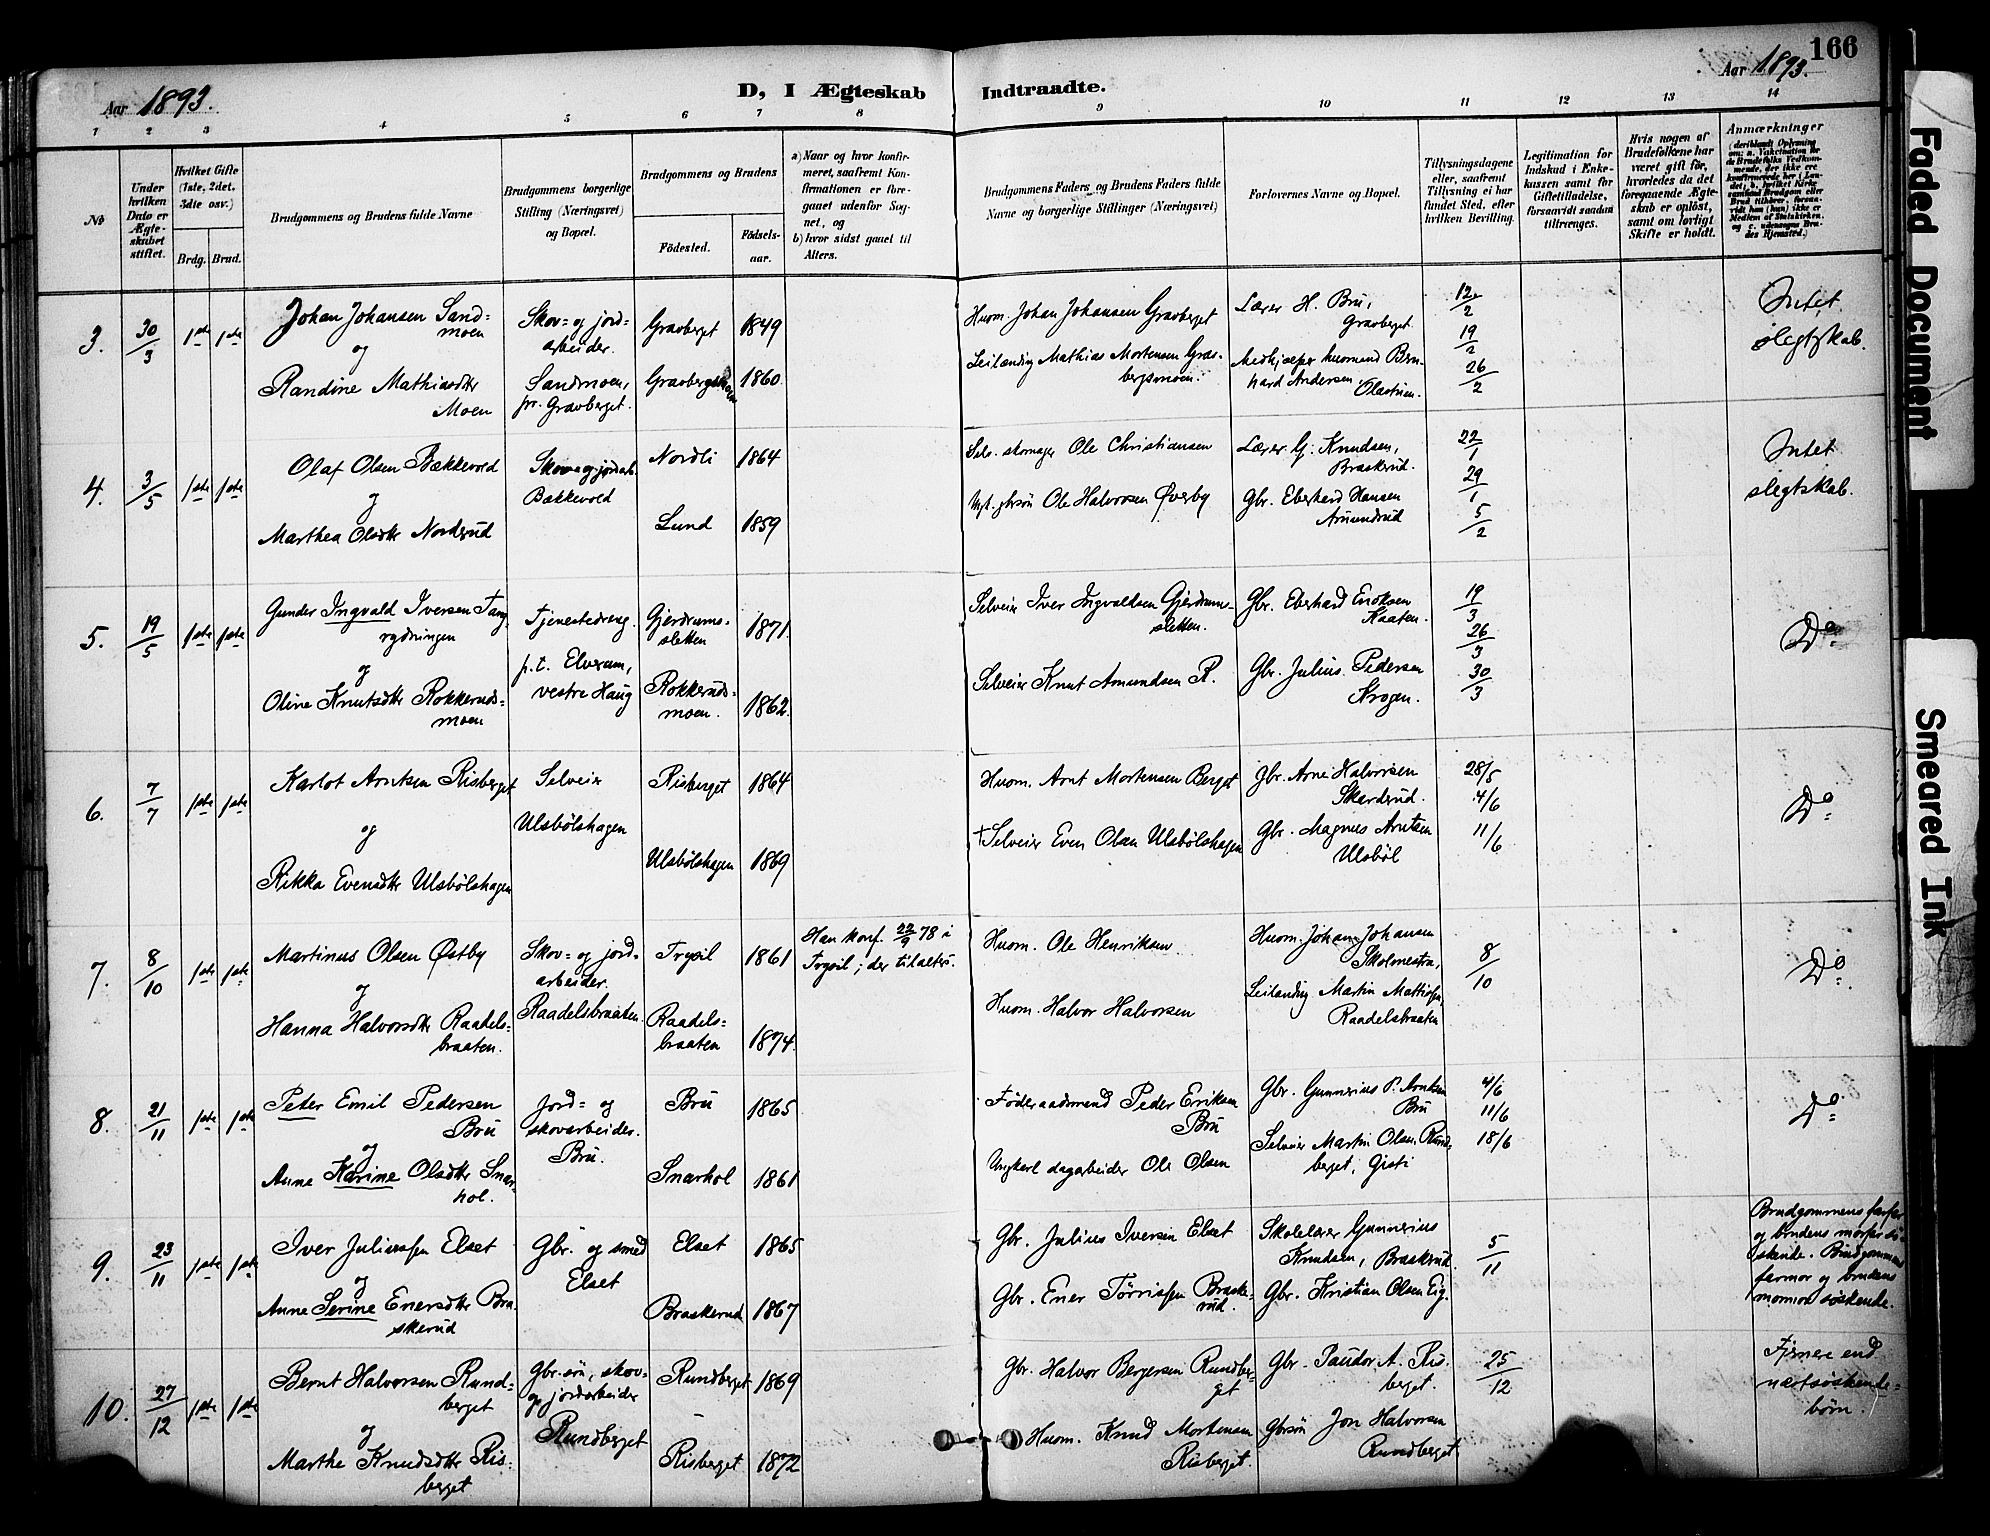 166
Aar 1893.
D, I Ægteskab Indtraadte.
Aar 1893.
1 2 3 4 5 6 7 8 9 10 11 12 13 14
No
Under hvilken Dato er Ægteskabet stiftet.
Hvilket Gifte (1ste, 2det, 3die osv.)
Brdg. Brud.
Brudgommens og Brudens fulde Navne
Brudgommens borgerlige Stilling (Næringsvei) og Bopæl.
Brudgommens og Brudens
Fødested.
Fødselsaar.
a) Naar og hvor konfirmeret, saafremt Konfirmationen er foregaaet udenfor Sognet, og
b) hvor sidst gaaet til Alters.
Brudgommens Faders og Brudens Faders fulde Navne og borgerlige Stillinger (Næringsvei)
Forlovernes Navne og Bopæl.
Tillysningsdagene eller, saafremt Tillysning ei har fundet Sted, efter hvilken Bevilling.
Legitimation for Indskud i Enkekassen samt for Giftetilladelse, forsaavidt saadan tiltrænges.
Hvis nogen af Brudefolkene har været gift før, hvorledes da det foregaaende Ægteskab er opløst, samt om lovligt Skifte er holdt.
Anmærkninger
(deriblandt Oplysning om: a. Vakcination for de Brudefolks Vedkommende, der ikke ere konfirmerede her i Landet, b. hvilket Kirkesamfund Brudgom eller Brud tilhører, forsaavidt han (hun) ikke er Medlem af Statskirken, og c. udensogns Brudes Hjemsted.)
3. 30/3 1ste 1ste
Johan Johansen Sandmoen
og
Randine Mathiasdtr Moen
Skov- og jordarbeider.
Sandmoen, pr. Gravberget.
Gravberget 1849
Gravbergsmoen 1860.
Husm. Johan Johansen Gravberget
Leilænding Mathias Mortensen Gravbergsmoen.
Lærer H. Bru, Gravberget.
Medhjælper husmand Bernhard Andersen
12/2
19/2
26/2
Intet slegtskab.
4. 3/5 1ste 1ste
Olaf Olsen Bækkevold
og
Marthea Olsdtr Nordsrud
Skov- og jordarb.
Bækkevold
Nordli 1864
Lund 1859
Selv. skomager Ole Christiansen
Ugt. gbrsøn Ole Halvorsen Øverby
Lærer G. Knudsen, Braskerud.
Gbr. Eberhard Hansen Amundrud
22/1
29/1
5/2
Intet slegtskab.
5. 19/5 1ste 1ste
Gunder Ingvald Iversen Tangrydningen
og
Oline Knutsdtr Rokkerudsmoen
Tjenestedreng.
p.t. Elverum, vestre Haug
Gjerdrumssletten 1871.
Rokkerudsmoen. 1862.
Selveier Iver Ingvaldsen Gjerdrumssletten.
Selveier Knut Amundsen R.
Gbr. Eberhard Eriksen Kaaten.
Gbr. Julius Pedersen Krogen.
19/3
26/3
30/3
Do
6. 7/7 1ste 1ste
Karlot Arntsen Risberget
og
Rikka Evensdtr Ulsbølshagen
Selveier
Ulsbølshagen
Risberget 1864
Ulsbølshagen 1869
Husm. Arnt Mortensen Berget
†Selveier Even Olsen Ulsbølshagen
Gbr. Arne Halvorsen Skarderud.
Gbr. Magnus Arntsen Ulsbøl
28/5
4/6
11/6
Do
7. 8/10 1ste 1ste
Martinus Olsen Østby
og
Hanna Halvorsdtr Raadelsbraaten.
Skov- og jordarbeider.
Raadelsbraaten.
Trysil 1861
Raadelsbraaten 1874.
Han konf. 22/9 78 i Trysil; der tilalters.
Husm. Ole Henriksen
Husm. Halvor Halvorsen
Husm. Johan Johansen
Leilænding Martin Mathisen, Raadelsbraaten
8/10
Do
8. 21/11 1ste 1ste
Peter Emil Pedersen Bru
og
Anne Karine Olsdtr Snarhol.
Jord- og skovarbeider.
Bru.
Bru 1865
Snarhol 1861
Føderaadsmand Peder Eriksen Bru
Ungkarl dagarbeider Ole Olsen
Gbr. Gunnerius P. Arntsen Bru
Selveier Martin Olsen Rundberget, Gjsti
4/6
11/6
18/6
Do
9. 23/11 1ste 1ste
Iver Juliussen Elset
og
Anne Serine Enersdtr Braskerud
Gbr. og smed
Elset
Elset 1865
Braskerud 1867
Gbr. Julius Iversen Elset
Gbr. Ener Tørrissen Braskerud.
Skolelærer Gunnerius Knudsen, Braskerud.
Gbr. Kristian Olsen Eig.
5/11
Brudgommens farfar og brudens morfar søskende. Brudgommens farmor og brudens mormor søskende.
10. 27/12 1ste 1ste
Bernt Halvorsen Rundberget
og
Marthe Knudsdtr Risberget
Gbr. søn, skov- og jordarbeider
Rundberget
Rundberget 1869
Risberget 1872
Gbr. Halvor Bergersen Rundberget
Husm. Knud Mortensen Risberget.
Gbr. Paudor A. Risberget.
Gbrsøn Jon Halvorsen Rundberget.
25/12
Fjernere end næstsøskendebørn.
Faded Document
Smeared Ink